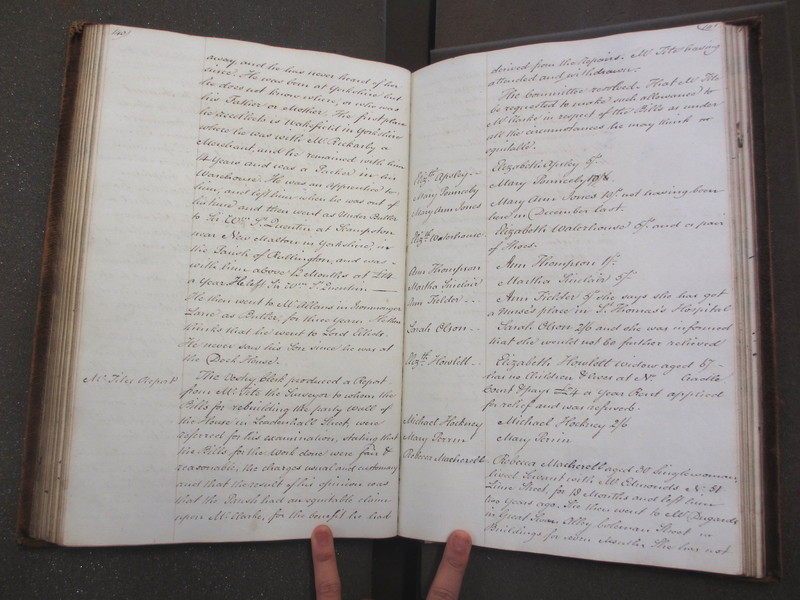 140
away, and he has never heard of her
since. He was born at Yorkshire but
he does not know where, or who was
his Father or Mother. The first place
he recollects is Wakefield in Yorkshire
where he was with Mr. Rickarby a
Merchant, and he remained with him
4 Years and was a Packer in his
Warehouse. He was an Apprentice to
him, and left him when he was out of
his time and then went as Under Butler
to Sir Wm. St. Quentin at
near New Malton in Yorkshire, in
the Parish of Rillington, and was
with him above 12 Months at £14
a Year. He left Sir Wm. St. Quentin
He then went to Mr. Allans in Ironmonger
Lane as Butler, for three years. He then
thinks that he went to Lord
He never saw his Son since he was at
the Dock House.
Mr. Tites Report
The Vestry Clerk produced a Report
from Mr. Tite the Surveyor to whom the
Bills for rebuilding the party Wall of
the House in Leadenhall Street, were
referred for his examination, stating that
the Bills for the work done were fair &
reasonable, the charges usual and customary
and that the result of his opinion was
that the Parish had an equitable claim
upon Mr. Clarke, for the benefit he had
derived from the Repairs. Mr. Tite having
attended and withdrawn.
The Committee resolved That Mr. Tite
be requested to make such allowance to
Mr. Clarke in respect of the Bills as under
all the circumstances he may think
equitable.
Elizth. Apsley
Elizabeth Apsley
Mary Penneby
Mary Penneby
Mary Ann Jones
Mary Ann Jones not having been
here in December last.
Elizth. Waterhouse
Elizabeth Waterhouse and a pair
of Shoes.
Ann Thompson
Ann Thompson
Martha Sinclair
Martha Sinclair
Ann Fielder
Ann Fielder she says she has got
a Nurse's place in St. Thomas's Hospital
Sarah Olson
Sarah Olson 2/6 and she was informed
that she would not be further relieved
Elizth. Howlett
Elizabeth Howlett Widow aged 67
has no Children & lives at No. Cradle
Court & pays £4 a Year Rent applied
for relief and was refused.
Michael Hockney
Michael Hockney 2/6
Mary Perrin
Mary Perrin
Rebecca Macherell
Rebecca Macherell aged 30 Singlewoman,
lived Servant with Mr. Edwards No. 51
Lime Street, for 18 Months and left him
two years ago. She then went to Mr. Dugards
in Great Coleman Street
Buildings for Months. She has not